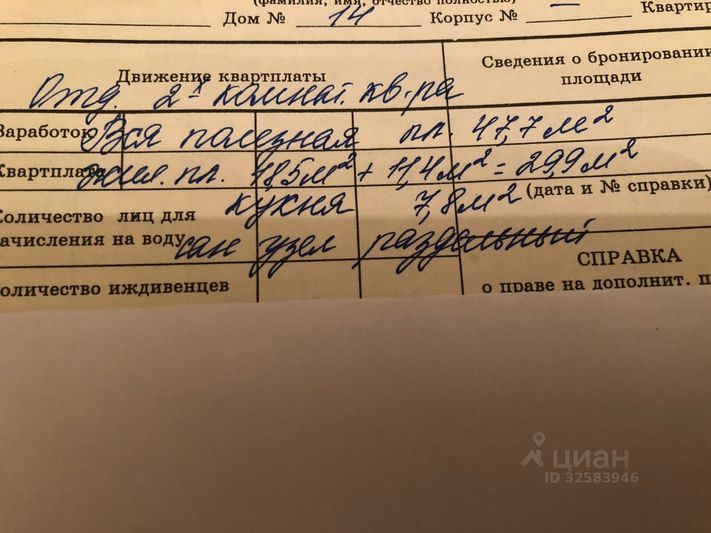 (фамилия, имя, отчество полностью)
Дом № 14 Корпус № — Квартир
Движение квартплаты
Сведения о бронировании
площади
Отд. 2х комнат. кв-ра
Заработок
Вся полезная пл. 47,7 м2
Квартплата
жил. пл. 18,5 м2 + 11,4 м2 = 29,9 м2
(дата и № справки)
Количество лиц для
кухня 7,8 м2
начисления на воду
сан узел раздельный
СПРАВКА
Количество иждивенцев
о праве на дополнит. п
циан
ID 32583946